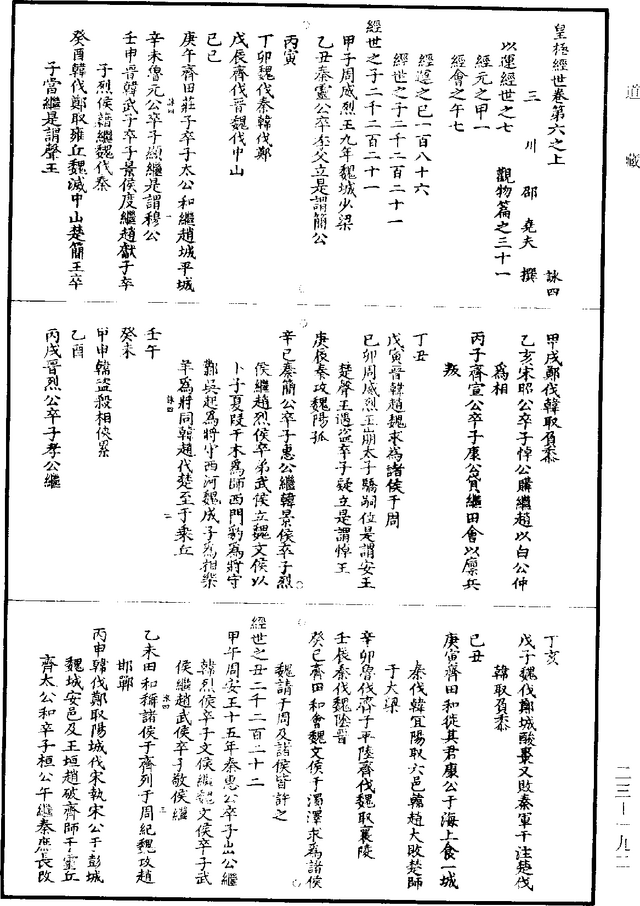 道藏
皇極經世卷第六之上 詠四
三川邵堯夫撰
以運經世之七 觀物篇之三十一
經元之甲一
經會之午七
經運之巳一百八十六
經世之子二千二百二十一
經世之子二千二百二十一
甲子周威烈王九年魏城少梁
乙丑秦靈公卒季父立是謂簡公
丙寅
丁卯魏伐秦韓伐鄭
戊辰齊伐晉魏伐中山
己巳
庚午齊田莊子卒子太公和繼趙城平城
辛未魯元公卒子顯繼是謂穆公
壬申晉韓武子卒子景侯度繼趙獻子卒
子烈侯籍繼魏伐秦
癸酉韓伐鄭取雍丘魏滅中山楚簡王卒
子當繼是謂聲王
甲戌鄭伐韓取負黍
乙亥宋昭公卒子悼公購繼趙以白公仲
為相
丙子齊宣公卒子康公貸繼田會以廩丘
叛
丁丑
戊寅晉韓趙魏求為諸侯于周
己卯周威烈王崩太子驕嗣位是謂安王
楚聲王遇盜卒子疑立是謂悼王
庚辰秦攻魏陽孤
辛巳秦簡公卒子惠公繼韓景侯卒子烈
侯繼趙烈侯卒弟武侯立魏文侯以
卜子夏段干木為師西門豹為將守
鄴吳起為將守西河魏成子為相樂
羊為將同韓趙伐楚至于乘丘
壬午
癸未
甲申韓盜殺相俠累
乙酉
丙戌晉烈公卒子孝公繼
丁亥
戊子魏伐鄭城酸棗又敗秦軍于注楚伐
韓取負黍
己丑
庚寅齊田和徙其君康公于海上食一城
秦伐韓宜陽取六邑韓趙大敗楚師
于大梁
辛卯魯伐齊于平陸齊伐魏取襄陵
壬辰秦伐魏陰晉
癸巳齊田和會魏文侯于濁澤求為諸侯
魏請于周及諸侯皆許之
經世之丑二千二百二十二
甲午周安王十五年秦惠公卒子出公繼
韓烈侯卒子文侯繼魏文侯卒子武
侯繼趙武侯卒子敬侯繼
乙未田和稱諸侯于齊列于周紀魏攻趙
邯鄲
丙申韓伐鄭取陽城伐宋執宋公于彭城
魏城安邑及王垣趙破齊師于靈丘
齊太公和卒子桓公午繼秦庶長改
二三—一九二